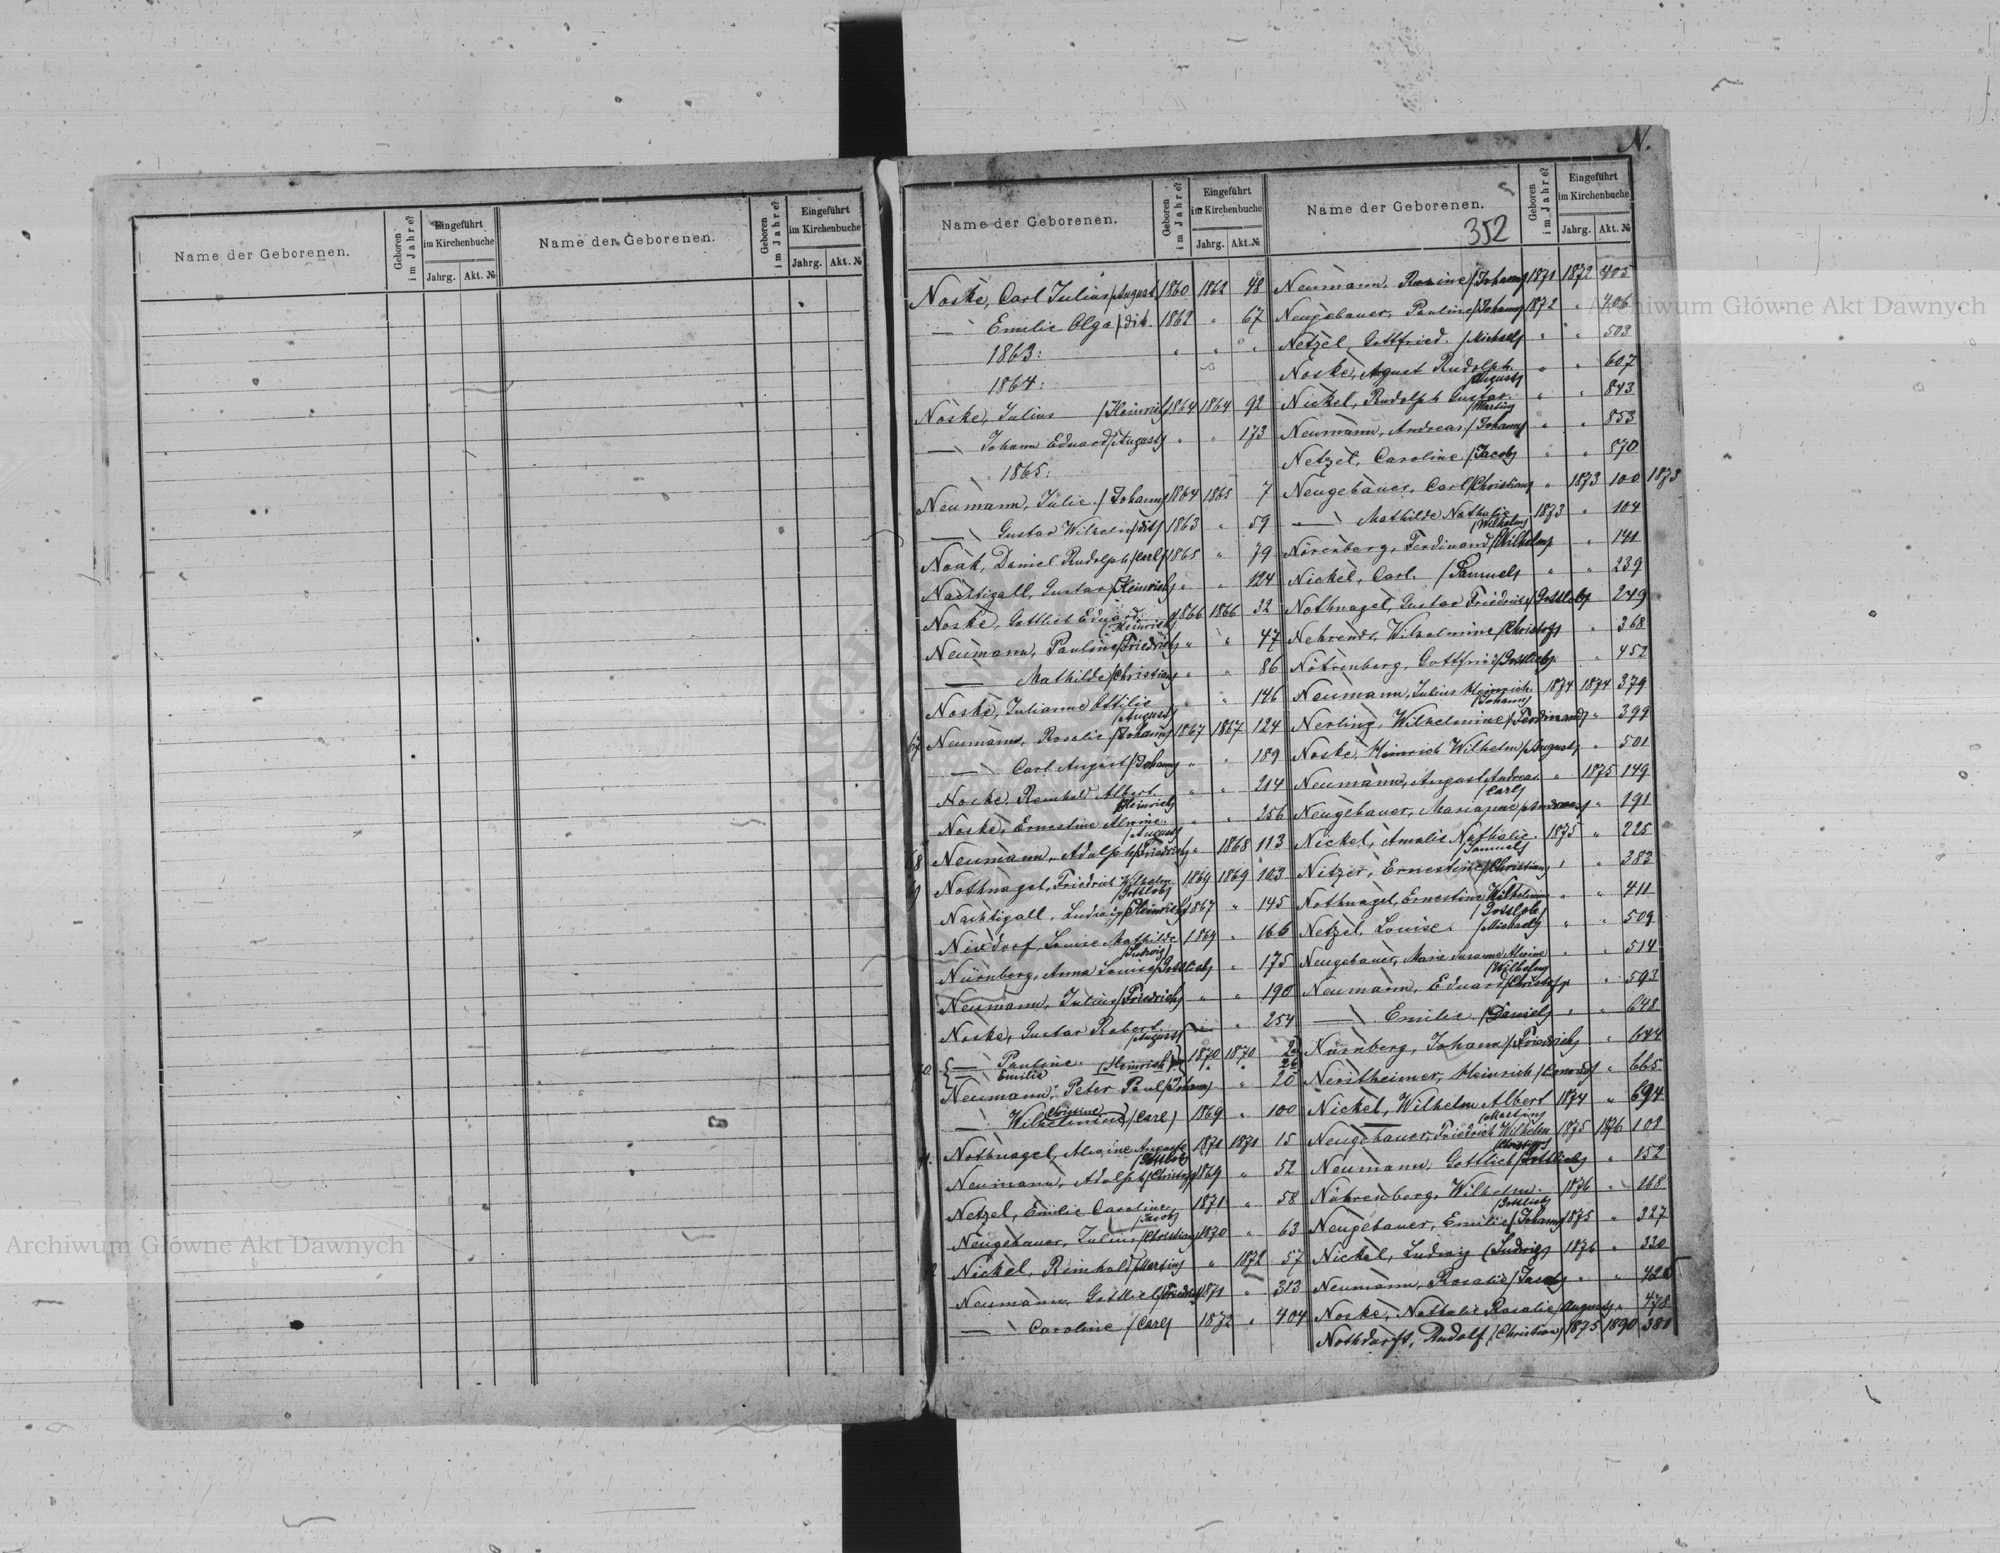 N.
Name der Geborenen.
Geboren im Jahre?
Eingeführt im Kirchenbuche
Jahrg. Akt. №
Name der Geborenen.
Geboren im Jahre?
Eingeführt im Kirchenbuche
Jahrg. Akt. №
Name der Geborenen.
Geboren im Jahre?
Eingeführt im Kirchenbuche
Jahrg. Akt. №
Name der Geborenen.
352
Geboren im Jahre?
Eingeführt im Kirchenbuche
Jahrg. Akt. №
Noske, Carl Julius /August/ 1860 1862 48
— Emilie Olga /dit. 1862 " 67
1863: " " "
1864:
Noske, Julius /Heinrich/ 1864 1864 92
— Johann Eduard /August/ " " 173
1865:
Neumann, Julie /Johann/ 1864 1865 7
— Gustav Wilhelm /dit/ 1863 " 59
Noak, Daniel Rudolph /Carl/ 1865 " 79
Nachtigall, Gustav /Heinrich/ " " 124
Noske, Gottlieb Eduard /Heinrich/ 1866 1866 32
Neumann, Pauline /Friedrich/ " " 47
— Mathilde /Christian/ " " 86
Noske, Julianne Ottilie /August/ " " 146
67 Neumann, Rosalie /Johann/ 1867 1867 124
— Carl August /Johann/ " " 189
Noske, Reinhold Albert /Heinrich/ " " 214
Noske, Ernestine Alwine /August/ " " 256
68 Neumann, Adolph /Friedrich/ " 1868 113
9 Nothnagel, Friedrich Wilhelm /Gottlob/ 1869 1869 103
Nachtigall, Ludwig /Heinrich/ 1867 " 145
Nixdorf, Louise Mathilde /Ludwig/ 1869 " 166
Nürnberg, Anna Louise /Gottlieb/ " 175
Neumann, Julius /Friedrich/ " " 190
Noske, Gustav Robert /August/ " " 254
— Pauline
Emilie /Heinrich/ 1870 1870
Neumann, Peter Paul /Johann/ " 20
— Christine /Carl/ 1869 " 100
Nothnagel, Alwine Auguste /Gottlob/ 1871 1871 15
Neumann, Adolph /Christoph/ 1869 " 52
Netzel, Emilie Caroline /Jacob/ 1871 " 58
Neugebauer, Julius /Christian/ 1870 " 63
2 Nickel, Reinhold /Martin/ " 1872 57
Neumann, Gottlieb /Friedrich/ 1871 " 313
— Caroline /Carl/ 1872 " 404
Neumann, Rosine /Johann/ 1871 1872 405
Neugebauer, Pauline /Johann/ 1872 " 406
Netzel, Gottfried /Michael/ " " 503
Noske, August Rudolph /August/ " " 607
Nickel, Rudolph Gustav /Martin/ " " 843
Neumann, Andreas /Johann/ " " 853
Netzel, Caroline /Jacob/ " " 570
Neugebauer, Carl /Christian/ " 1873 100 1873
— Mathilde Nathalie /Wilhelm/ 1873 " 104
Nörenberg, Ferdinand /Wilhelm/ " 141
Nickel, Carl /Samuel/ " " 239
Nothnagel, Gustav Friedrich /Gottlob/ 249
Nehrendt, Wilhelmine /Christof/ " 368
Nöhrenberg, Gottfried /Gottlieb/ " 452
Neumann, Julius Heinrich /Johann/ 1874 1874 379
Nerling, Wilhelmine /Ferdinand/ " 399
Noske, Heinrich Wilhelm /August/ " 501
Neumann, August Andreas /Carl/ " 1875 149
Neugebauer, Marianne /Andreas/ " 191
Nickel, Amalie Nathalie /Samuel/ 1875 " 225
Nitzer, Ernestine /Christian/ " " 382
Nothnagel, Ernestine Wilhelmine /Gottlob/ " " 411
Netzel, Louise /Michael/ " " 509
Neugebauer, Marie Susanna Alwine /Wilhelm/ " " 514
Neumann, Eduard /Christof/ " 593
— Emilie /Daniel/ " " 648
Nürnberg, Johann /Friedrich/ " 644
Neritheimer, Heinrich /Conrad/ " 665
Nickel, Wilhelm Albert /Martin/ 1874 " 694
Neugebauer, Friedrich Wilhelm /Christian/ 1875 1876 102
Neumann, Gottlieb /Gottlieb/ " 152
Nöhrenberg, Wilhelm /Gottlieb/ 1876 " 268
Neugebauer, Emilie /Johann/ 1875 " 327
Nickel, Ludwig /Ludwig/ 1876 " 330
Neumann, Rosalie /Jacob/ " " 425
Noske, Nathalie Rosalie /August/ " 478
Nothdurft, Rudolf /Christian/ 1875 1890 381
Archiwum Główne Akt Dawnych
Archiwum Główne Akt Dawnych